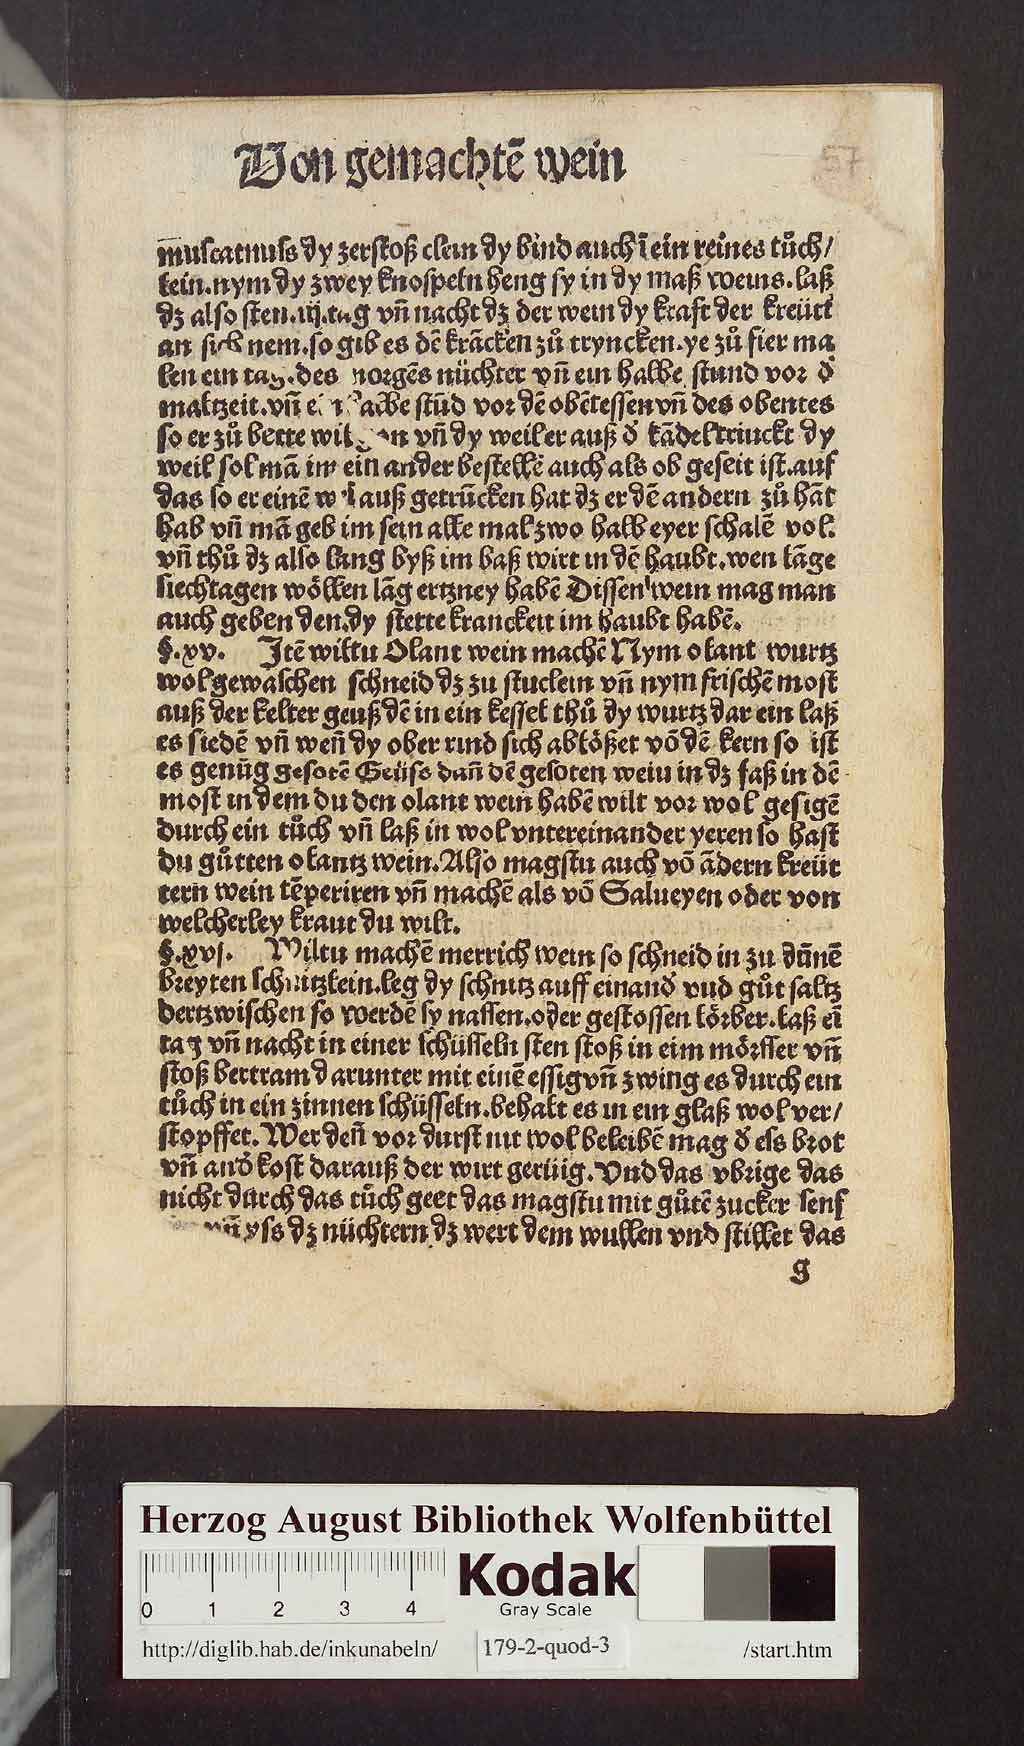 Von gemachtē wein
57
muscatnuss dy zerstoß clein dy bind auch ī ein reines tůch/
lein. nym dy zwey knospeln heng sy in dy maß weins. laß
dz also sten .iij. tag vñ nacht dz der wein dy kraft der kreüt
an sich nem. so gib es dē krācken zů tryncken. ye zů fier ma
len ein tag. des morgēs nüchter vñ ein halbe stund vor d̄
maltzeit. vñ ein halbe stūd vor dē obētessen vñ des obentes
so er zů bette wil gan vñ dy weil er auß d̄ kādel trinckt dy
weil sol mā im ein ander bestellē auch als ob geseit ist. auf
das so er einē auß getrūcken hat dz er dē andern zů hāt
hab vñ mā geb im sein alle mal zwo halb eyer schalē vol.
vñ thů dz also lang byß im baß wirt in dē haubt. wen lāge
siechtagen wöllen lāg ertzney habē Dissen wein mag man
auch geben den. dy stette kranckeit im haubt habē.
§. xv. Itē wiltu Olant wein machē Nym olant wurtz
wol gewaschen schneid dz zu stuclein vñ nym frischē most
auß der kelter geuß dē in ein kessel thů dy wurtz dar ein laß
es siedē vñ weñ dy ober rind sich ablößet vō dē kern so ist
es genūg gesotē Geüse dañ dē gesoten wein in dz faß in dē
most in dem du den olant wein habē wilt vor wol gesigē
durch ein tůch vñ laß in wol vntereinander yeren so hast
du gůtten olantz wein. Also magstu auch vō ādern kreüt
tern wein tēperiren vñ machē als vō Salueyen oder von
welcherley kraut du wilt.
§. xvj. Wiltu machē merrich wein so schneid in zu dūnē
breyten schnitzlein. leg dy schnitz auff einand̄ vnd gůt saltz
dertzwischen so werdē sy nassen. oder gestossen lörber. laß eī
tag vñ nacht in einer schüsseln sten stoß in eim mörsser vñ
stoß bertram darunter mit einē essig vñ zwing es durch ein
tůch in ein zinnen schüsseln. behalt es in ein glaß wol ver/
stopffet. Wer deñ vor durst nit wol beleibē mag d̄ ess brot
vñ and̄ kost darauß der wirt gerüig. Vnd das vbrige das
nicht durch das tůch geet das magstu mit gůtē zucker senf
vñ yss dz nüchtern dz wert dem wullen vnd stillet das
g
Herzog August Bibliothek Wolfenbüttel
0 1 2 3 4
Kodak
Gray Scale
http://diglib.hab.de/inkunabeln/ 179-2-quod-3 /start.htm